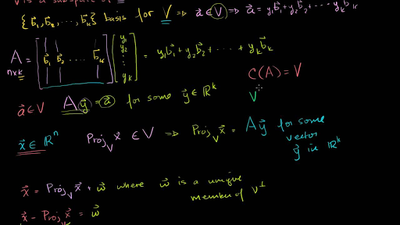 V is a subspace of
{b⃗₁, b⃗₂, ..., b⃗ₖ} basis for V ⇒ a⃗ ∈ V ⇒ a⃗ = y₁b⃗₁ + y₂b⃗₂ + ... yₖb⃗ₖ
A n×k = [b⃗₁ b⃗₂ ... b⃗ₖ] [y₁ y₂ ⋮ yₖ] = y₁b⃗₁ + y₂b⃗₂ + ... + yₖb⃗ₖ
C(A) = V
a⃗ ∈ V Ay⃗ = a⃗ for some y⃗ ∈ ℝᵏ
V
x⃗ ∈ ℝⁿ Proj_V x⃗ ∈ V ⇒ Proj_V x⃗ = Ay⃗ for some
vector
y⃗ in ℝᵏ
x⃗ = Proj_V x⃗ + w⃗ where w⃗ is a unique
member of V⊥
x⃗ - Proj_V x⃗ = w⃗